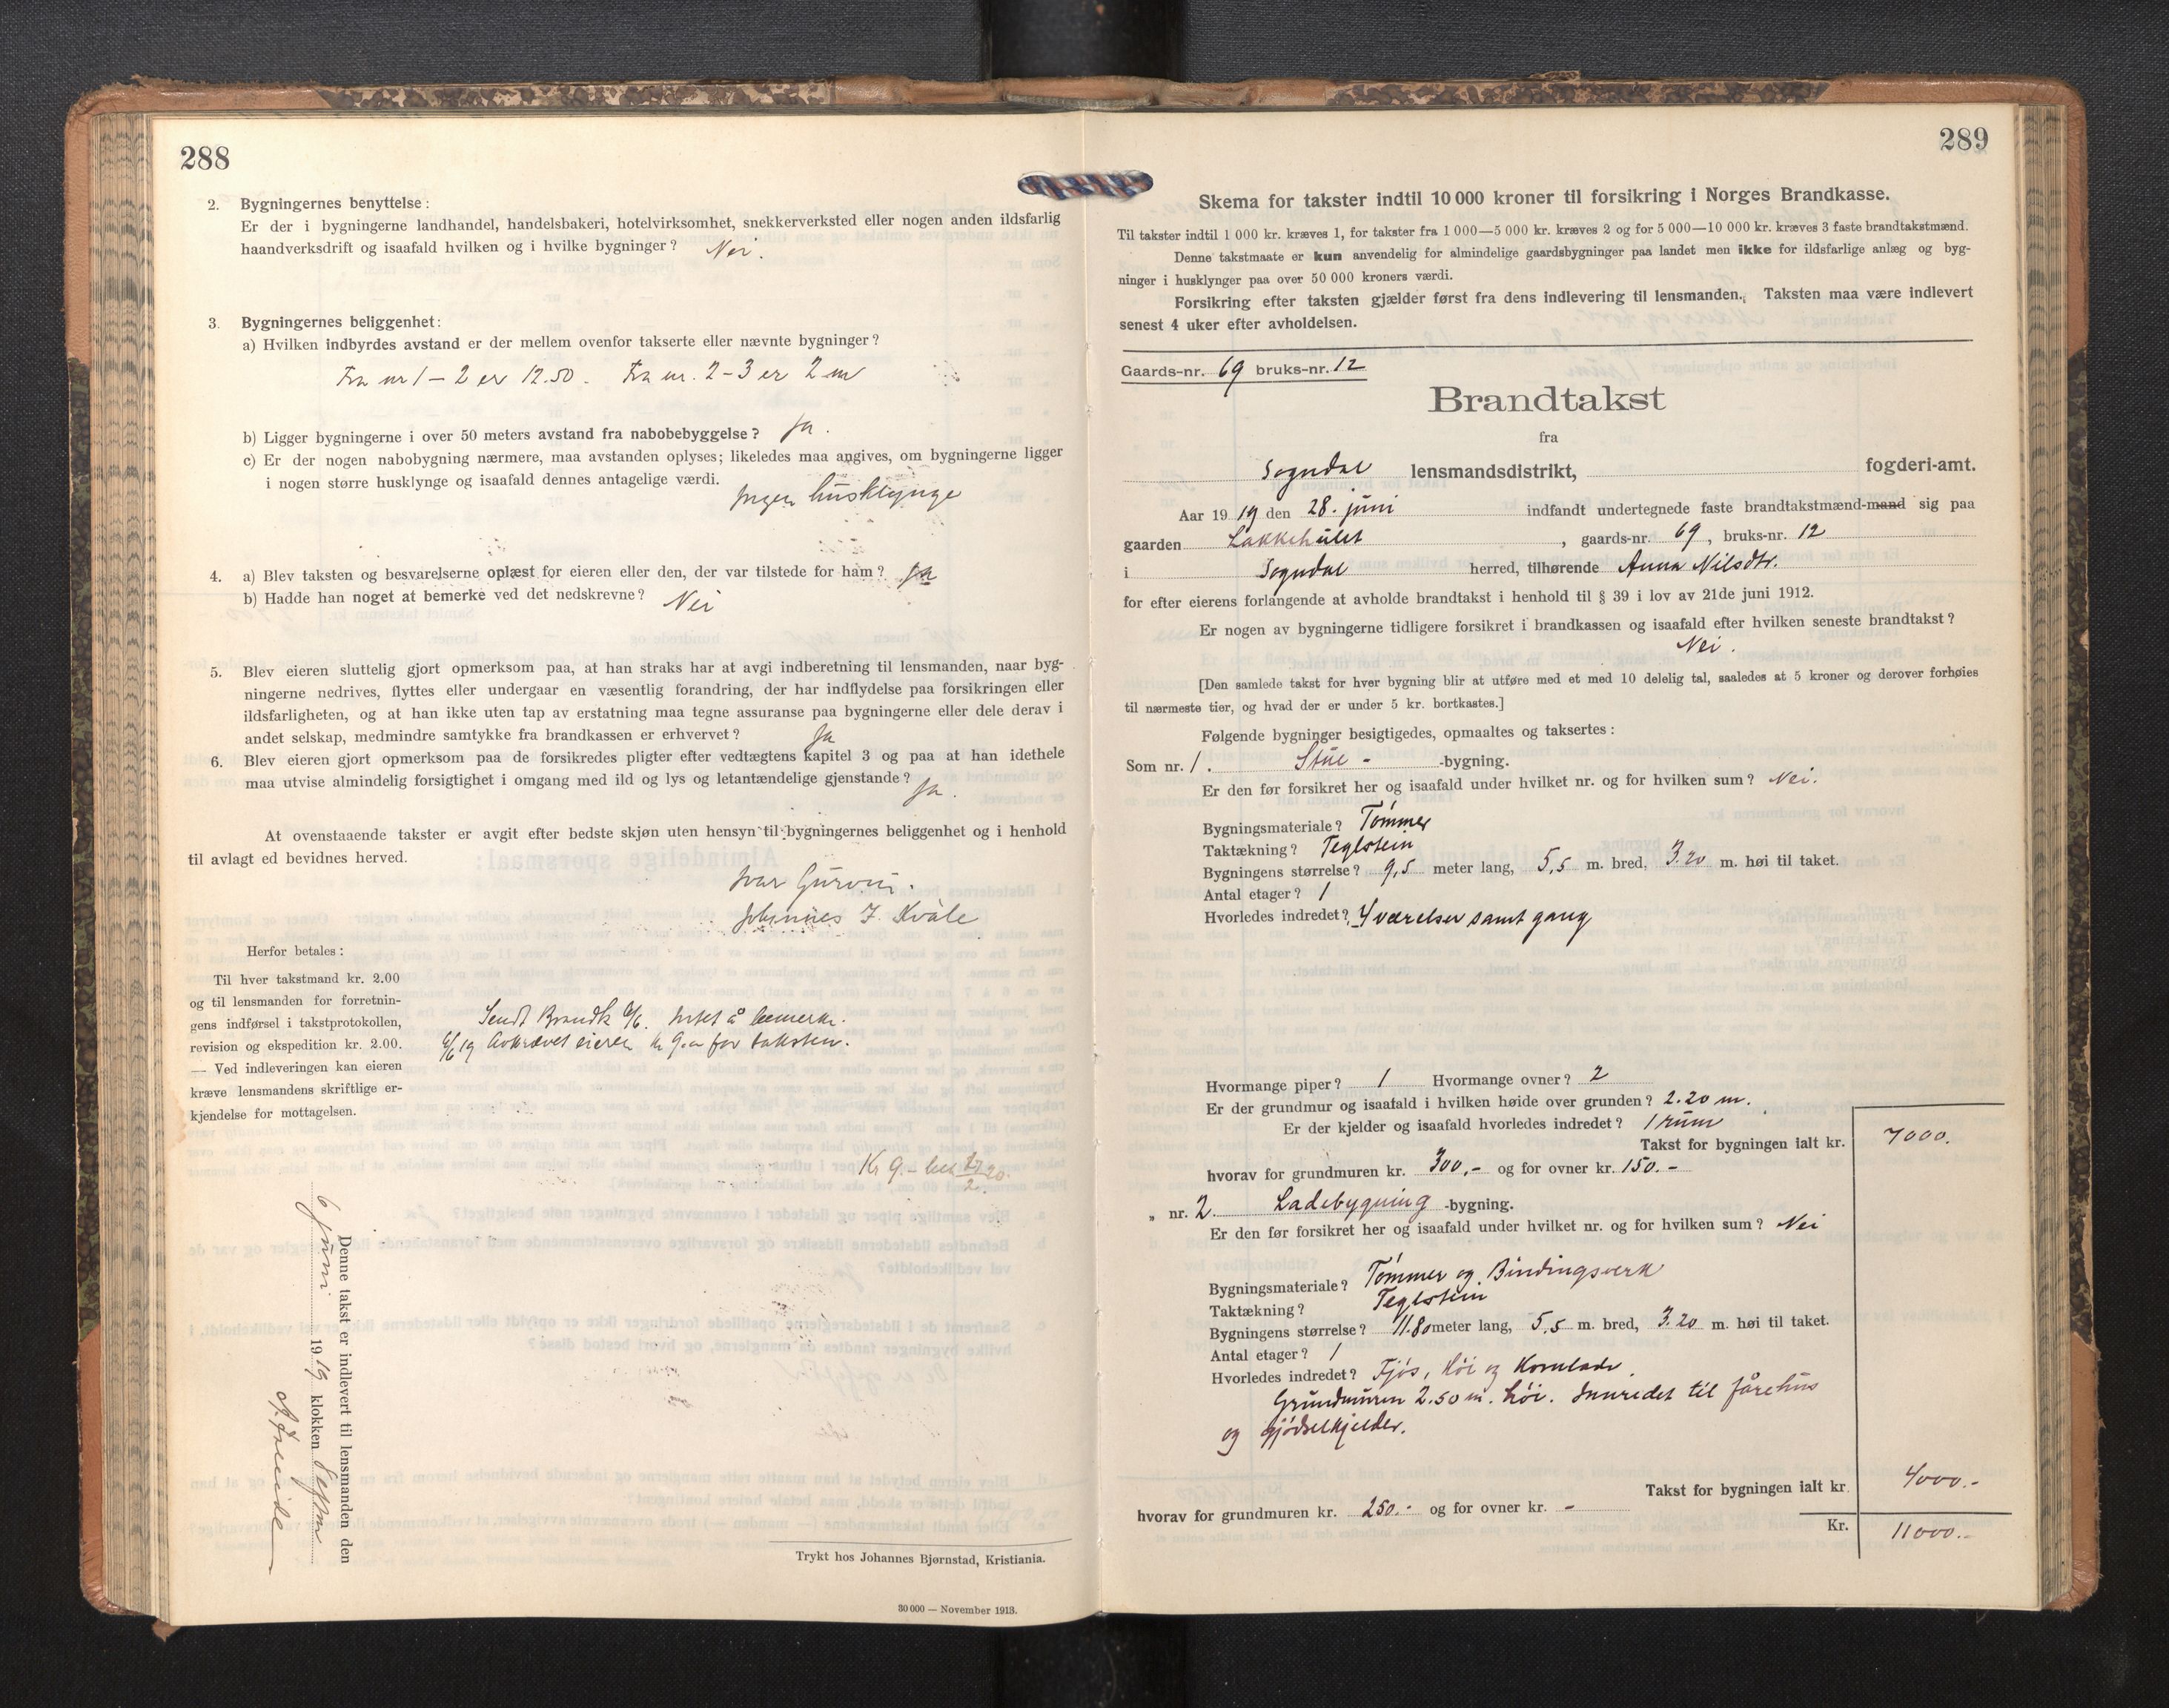 288
2. Bygningernes benyttelse:
Er der i bygningerne landhandel, handelsbakeri, hotelvirksomhet, snekkerverksted eller nogen anden ildsfarlig
haandverksdrift og isaafald hvilken og i hvilke bygninger? Nei.
3. Bygningernes beliggenhet:
a) Hvilken indbyrdes avstand er der mellem ovenfor takserte eller nævnte bygninger?
Fra nr 1 – 2 er 12.50. Fra nr. 2 – 3 er 2 m
b) Ligger bygningerne i over 50 meters avstand fra nabobebyggelse? Ja.
c) Er der nogen nabobygning nærmere, maa avstanden oplyses; likeledes maa angives, om bygningerne ligger
i nogen større husklynge og isaafald dennes antagelige værdi. Ingen husklynge
4. a) Blev taksten og besvarelserne oplæst for eieren eller den, der var tilstede for ham? Ja
b) Hadde han noget at bemerke ved det nedskrevne? Nei
5. Blev eieren sluttelig gjort opmerksom paa, at han straks har at avgi indberetning til lensmanden, naar byg-
ningerne nedrives, flyttes eller undergaar en væsentlig forandring, der har indflydelse paa forsikringen eller
ildsfarligheten, og at han ikke uten tap av erstatning maa tegne assuranse paa bygningerne eller dele derav i
andet selskap, medmindre samtykke fra brandkassen er erhvervet? Ja
6. Blev eieren gjort opmerksom paa de forsikredes pligter efter vedtægtens kapitel 3 og paa at han idethele
maa utvise almindelig forsigtighet i omgang med ild og lys og letantændelige gjenstande? Ja.
At ovenstaaende takster er avgit efter bedste skjøn uten hensyn til bygningernes beliggenhet og i henhold
til avlagt ed bevidnes herved.
Ivar Gurvin.
Johannes J. Kvåle
Herfor betales:
Til hver takstmand kr. 2.00
og til lensmanden for forretnin-
gens indførsel i takstprotokollen,
revision og ekspedition kr. 2.00.
— Ved indleveringen kan eieren
kræve lensmandens skriftlige er-
kjendelse for mottagelsen.
Sendt Brandk 6/6. Intet å bemerke.
6/6 19 Avkrævet eieren kr 9.00 for taksten.
Kr 9.–
Denne takst er indlevert til lensmanden den
6 juni 1919 klokken 8 eftm
Trykt hos Johannes Bjørnstad, Kristiania.
30 000 — November 1913.
289
Skema for takster indtil 10 000 kroner til forsikring i Norges Brandkasse.
Til takster indtil 1 000 kr. kræves 1, for takster fra 1 000—5 000 kr. kræves 2 og for 5 000—10 000 kr. kræves 3 faste brandtakstmænd.
Denne takstmaate er kun anvendelig for almindelige gaardsbygninger paa landet men ikke for ildsfarlige anlæg og byg-
ninger i husklynger paa over 50 000 kroners værdi.
Forsikring efter taksten gjælder først fra dens indlevering til lensmanden. Taksten maa være indlevert
senest 4 uker efter avholdelsen.
Gaards-nr. 69 bruks-nr. 12
Brandtakst
fra
Sogndal lensmandsdistrikt, fogderi-amt.
Aar 1919 den 28. juni indfandt undertegnede faste brandtakstmænd-mand sig paa
gaarden Lakkehulet, gaards-nr. 69, bruks-nr. 12
i Sogndal herred, tilhørende Anna Nilsdtr.
for efter eierens forlangende at avholde brandtakst i henhold til § 39 i lov av 21de juni 1912.
Er nogen av bygningerne tidligere forsikret i brandkassen og isaafald efter hvilken seneste brandtakst?
Nei.
[Den samlede takst for hver bygning blir at utføre med et med 10 delelig tal, saaledes at 5 kroner og derover forhøies
til nærmeste tier, og hvad der er under 5 kr. bortkastes.]
Følgende bygninger besigtigedes, opmaaltes og taksertes:
Som nr. 1. Stue - -bygning.
Er den før forsikret her og isaafald under hvilket nr. og for hvilken sum? Nei.
Bygningsmateriale? Tømmer
Taktækning? Teglstein
Bygningens størrelse? 9,5 meter lang, 5,5 m. bred, 3.20 m. høi til taket.
Antal etager? 1
Hvorledes indredet? 4 værelser samt gang
Hvormange piper? 1 Hvormange ovner? 2
Er der grundmur og isaafald i hvilken høide over grunden? 2.20 m.
Er der kjelder og isaafald hvorledes indredet? 1 rum
Takst for bygningen ialt kr. 7000.
hvorav for grundmuren kr. 300,- og for ovner kr. 150.-
„ nr. 2. Ladebygning -bygning.
Er den før forsikret her og isaafald under hvilket nr. og for hvilken sum? Nei
Bygningsmateriale? Tømmer og Bindingsverk
Taktækning? Teglstein
Bygningens størrelse? 11.80 meter lang, 5,5 m. bred, 3.20 m. høi til taket.
Antal etager? 1
Hvorledes indredet? Fjøs, høi og Kornlade.
Grundmuren 2.50 m. høi. Innredet til fårehus
og gjødselkjelder.
Takst for bygningen ialt kr. 4000.-
hvorav for grundmuren kr. 250.- og for ovner kr. -
Kr. 11000.-